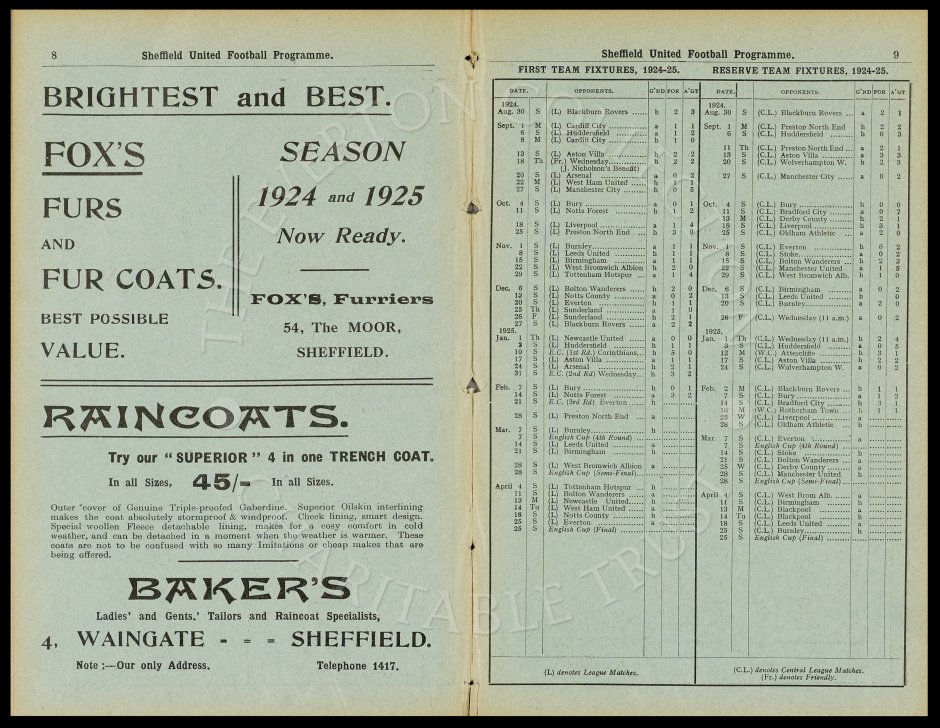 8
Sheffield United Football Programme.
BRIGHTEST and BEST.
FOX'S
FURS
AND
FUR COATS.
BEST POSSIBLE
VALUE.
SEASON
1924 and 1925
Now Ready.
FOX'S, Furriers
54, The MOOR,
SHEFFIELD.
RAINCOATS.
Try our "SUPERIOR" 4 in one TRENCH COAT.
In all Sizes, 45/- In all Sizes.
Outer cover of Genuine Triple-proofed Gaberdine. Superior Oilskin interlining
makes the coat absolutely stormproof & windproof. Check lining, smart design.
Special woollen Fleece detachable lining, makes for a cosy comfort in cold
weather, and can be detached in a moment when the weather is warmer. These
coats are not to be confused with so many Imitations or cheap makes that are
being offered.
BAKER'S
Ladies' and Gents.' Tailors and Raincoat Specialists,
4, WAINGATE - - - SHEFFIELD.
Note :—Our only Address. Telephone 1417.
Sheffield United Football Programme. 9
FIRST TEAM FIXTURES, 1924-25.
DATE. OPPONENTS. G'ND FOR A'GT
1924.
Aug. 30 S (L) Blackburn Rovers ...... h 2 3
Sept. 1 M (L) Cardiff City ............ a 1 1
6 S (L) Huddersfield ............ a 1 2
8 M (L) Cardiff City ............ h 1 0
13 S (L) Aston Villa ............ h 2 2
18 Th (Fr.) Wednesday............ h 2 2
(J. Nicholson's Benefit)
20 S (L) Arsenal ............ a 0 2
22 M (L) West Ham United ...... h 1 1
27 S (L) Manchester City ...... h 0 5
Oct. 4 S (L) Bury ............ a 0 1
11 S (L) Notts Forest ............ h 1 2
18 S (L) Liverpool ............ a 1 4
25 S (L) Preston North End ... h 3 0
Nov. 1 S (L) Burnley............ a 1 1
8 S (L) Leeds United ............ h 1 1
15 S (L) Birmingham ............ a 1 1
22 S (L) West Bromwich Albion h 2 0
29 S (L) Tottenham Hotspur ... a 1 4
Dec. 6 S (L) Bolton Wanderers ...... h 2 0
13 S (L) Notts County ............ a 0 2
20 S (L) Everton ............ h 1 1
25 Th (L) Sunderland ............ a 1 0
26 F (L) Sunderland ............ h 2 1
27 S (L) Blackburn Rovers ...... a 2 2
1925.
Jan. 1 Th (L) Newcastle United ...... a 0 0
3 S (L) Huddersfield ............ h 1 1
10 S E.C. (1st Rd.) Corinthians,... h 5 0
17 S (L) Aston Villa ............ a 1 1
24 S (L) Arsenal ............ h 2 1
31 S E.C. (2nd Rd) Wednesday... h 3 2
Feb. 7 S (L) Bury ............ h 0 1
14 S (L) Notts Forest ............ a 3 2
21 S E.C. (3rd Rd) Everton ...... h
28 S (L) Preston North End a
Mar. 7 S (L) Burnley............ h
7 S English Cup (4th Round) ...
14 S (L) Leeds United ............ a
21 S (L) Birmingham ............ h
28 S (L) West Bromwich Albion a
28 S English Cup (Semi-Final)...
April 4 S (L) Tottenham Hotspur ... h
11 S (L) Bolton Wanderers ...... a
13 M (L) Newcastle United ...... h
14 Tu (L) West Ham United ...... a
18 S (L) Notts County ............ h
25 S (L) Everton ............ a
25 S English Cup (Final) ......
(L) denotes League Matches.
RESERVE TEAM FIXTURES, 1924-25.
DATE. OPPONENTS. G'ND FOR A'GT
1924.
Aug. 30 S (C.L.) Blackburn Rovers ... a 2 1
Sept. 1 M (C.L.) Preston North End h 2 2
6 S (C.L.) Huddersfield ...... h 0 3
11 Th (C.L.) Preston North End ... a 2 1
13 S (C.L.) Aston Villa ............ a 3 3
20 S (C.L.) Wolverhampton W. h 2 3
27 S (C.L.) Manchester City ...... a 0 2
Oct. 4 S (C.L.) Bury ............ h 0 0
11 S (C.L.) Bradford City ...... a 0 7
13 M (C.L.) Derby County ...... h 2 1
18 S (C.L.) Liverpool ............ h 3 1
25 S (C.L.) Oldham Athletic ... a 2 0
Nov. 1 S (C.L.) Everton ............ h 6 2
8 S (C.L.) Stoke............ a 0 2
15 S (C.L.) Bolton Wanderers ... h 2 3
22 S (C.L.) Manchester United a 1 5
29 S (C.L.) West Bromwich Alb. h 1 0
Dec. 6 S (C.L.) Birmingham ...... a 0 2
13 S (C.L.) Leeds United ...... h 0
20 S (C.L.) Burnley............ a 2 0
26 F (C.L.) Wednesday (11 a.m.) a 0 2
1925.
Jan. 1 Th (C.L.) Wednesday (11 a.m.) h 2 4
3 S (C.L.) Huddersfield ...... a 0 5
12 M (W.C.) Attercliffe ...... h 3 1
17 S (C.L.) Aston Villa ...... h 2 2
24 S (C.L.) Wolverhampton W. a 0 2
Feb. 2 M (C.L.) Blackburn Rovers ... h 1 1
7 S (C.L.) Bury ............ a 1 2
14 S (C.L.) Bradford City ...... h 3 1
16 M (W.C.) Rotherham Town ... h 1 1
25 W (C.L.) Liverpool ............ a
28 S (C.L.) Oldham Athletic h
Mar. 7 S (C.L.) Everton ............ a
7 S English Cup (4th Round) ...
14 S (C.L.) Stoke ............ h
21 S (C.L.) Bolton Wanderers ... a
25 W (C.L.) Derby County ...... a
28 S (C.L.) Manchester United h
28 S English Cup (Semi-Final) ...
April 4 S (C.L.) West Brom Alb. ...... a
11 S (C.L.) Birmingham ...... h
13 M (C.L.) Blackpool ............ h
14 Tu (C.L.) Blackpool ............ a
18 S (C.L.) Leeds United ...... a
25 S (C.L.) Burnley............ h
25 S English Cup (Final) ......
(C.L.) denotes Central League Matches.
(Fr.) denotes Friendly.
CHARITABLE TRUST